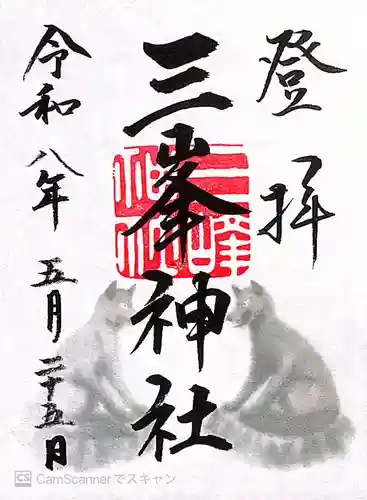 登拝
三峯神社
令和八年 五月二十五日
CS CamScannerでスキャン